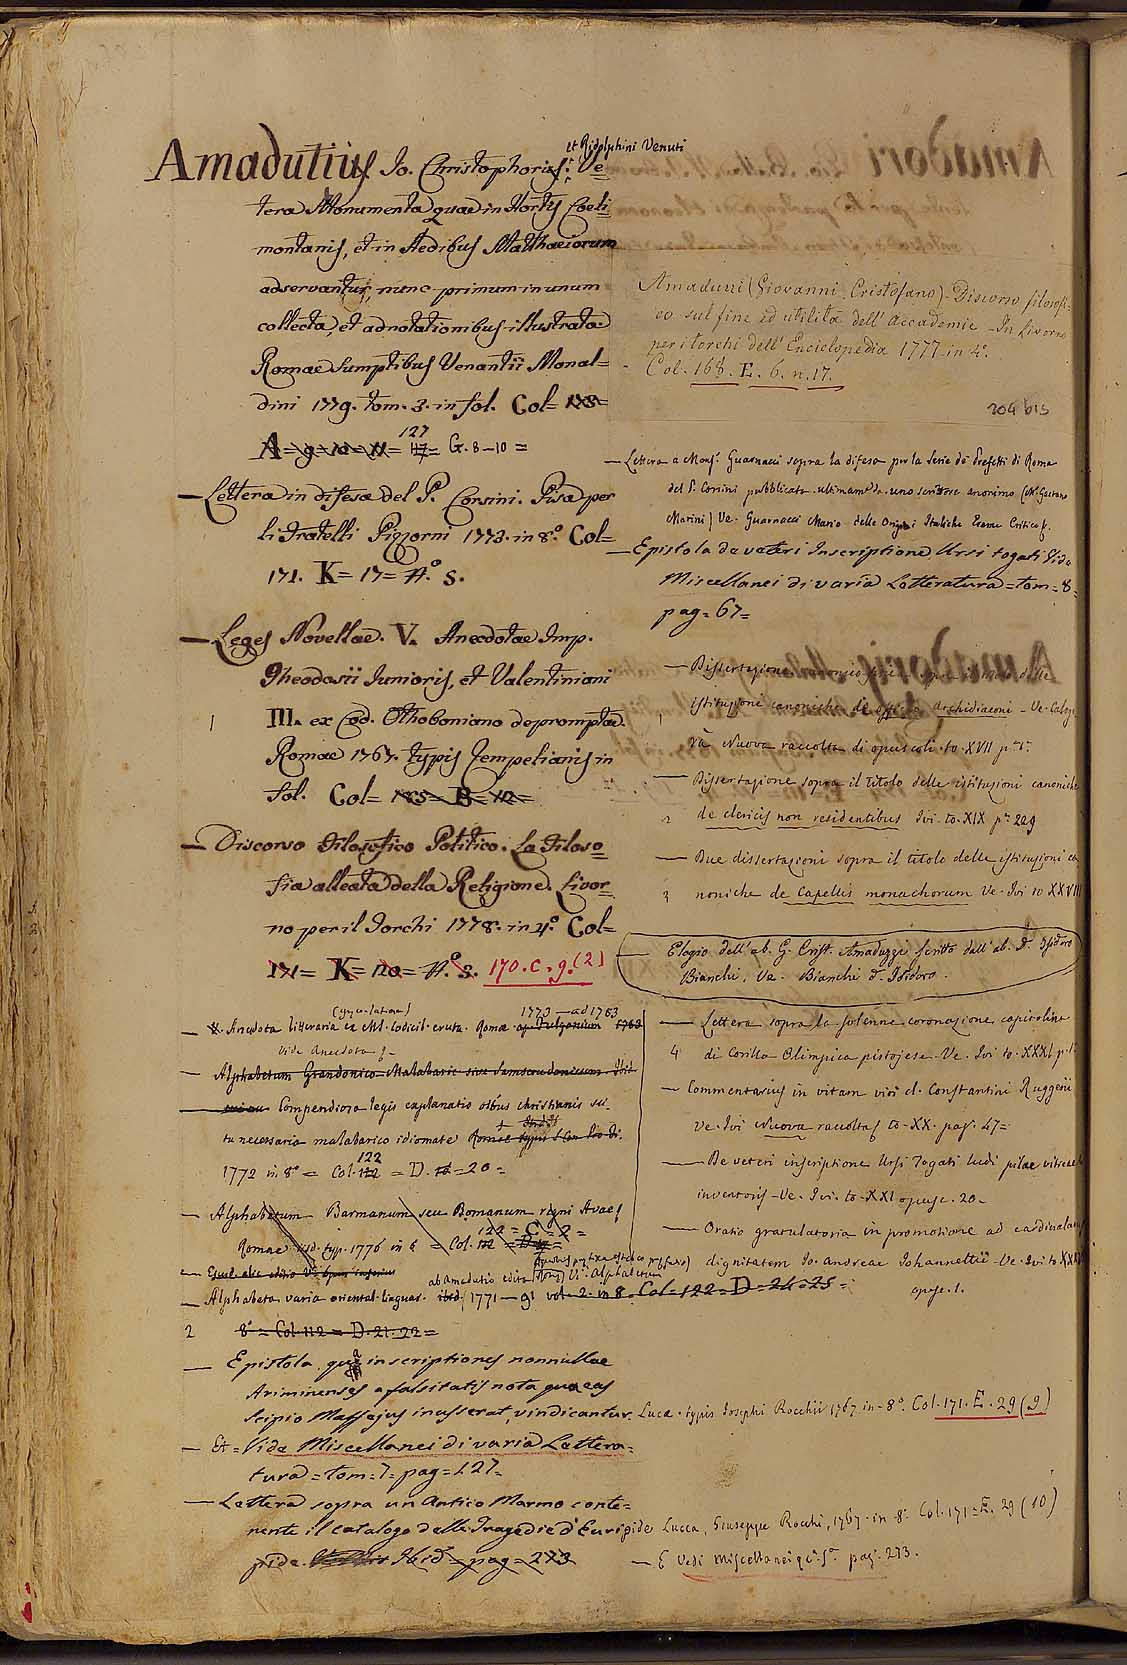 et Ridolphini Venuti
Amadutius Jo. Christophorus. Ve=
tera Monumenta quae in Hortis Coeli=
montanis, et in Aedibus Matthaeiorum
adservantur, nunc primum in unum
collecta, et adnotationibus illustrata
Romae Sumptibus Venantii Monal=
dini 1779. tom. 3. in fol. Col= 178=
127
A = 9 = 10 = 11 = 117= G. 8 - 10 =
— Lettera in difesa del P. Corsini. Pisa per
li Fratelli Pizzorni 1773. in 8.º Col=
171. K= 17= A.º S.
— Leges Novellae. V. Anecdotae Imp.
Theodosii Junioris, et Valentiniani
1 III. ex Cod. Othoboniano depromptae
Romae 1767. typis Zempelianis in
fol. Col= 185= B= 112=
— Discorso Filosofico Politico. La Filoso=
fia alleata della Religione. Livor=
no per il Torchi 1778. in 4.º Col=
171= K= 120= A.º S. 170. C. 9. (2)
(Graeco-latina) 1773 — ad 1783
— Anecdota litteraria ex MS. codicib. eruta. Romae ap. Fulgonium 1783
vide Anecdota
— Alphabetum Grandonico-Malabaric sive Samscrudonicum. Ibid.
— Compendiosa legis explanatio oibus christianis sci-
tu necessaria malabarico idiomate Romae typis
122
1772 in 8º = Col. 112 = D. 18 = 20 =
— Alphabetum Barmanum seu Bomanum regni Avae
122 = C = 2 =
Romae iisd. typ. 1776 in 8 = Col. 112 = D
—
ab Amadutio edita Vi. Alphabetum
— Alphabeta varia oriental. linguar. ibid. 1771 — 91 vol. 2. in 8. Col= 122= D= 24= 25=
2 8º = Col. 112 = D. 21. 22 =
— Epistola, qua inscriptiones nonnullae
Ariminenses a falsitatis nota qua eas
Scipio Maffejus inusserat, vindicantur. Lucae. typis Josephi Rocchii 1767. in-8º. Col. 171. E. 29 (9)
— Et = Vide Miscellanei di varia Lettera=
tura = tom = 7 = pag = 127=
— Lettera sopra un Antico Marmo conte=
nente il catalogo delle Tragedie d'Euripide Lucca, Giuseppe Rocchi, 1767. in 8º. Col. 171= E. 29 (10)
pide. Ibid = pag = 273
— E Vedi Miscellanei pag. 273.
Amaduzzi (Giovanni Cristofano) - Discorso filosofi-
co sul fine ed utilità dell' Accademie - In Livorno
per i torchi dell' Enciclopedia 1777 in 4º.
Col. 168. E. 6. n. 17.
204 bis
— Lettera a Monsr. Guarnacci sopra la difesa per la Serie de' Prefetti di Roma
del P. Corsini pubblicata ultimamte. da uno scrittore anonimo (Ab. Gaetano
Marini) Ve. Guarnacci Mario delle Origini Italiche Esame Critico
— Epistola de veteri Inscriptione Ursi togati Vide
Miscellanei di varia Letteratura = tom = 8=
pag = 67=
— Dissertazione
1 istituzioni canoniche de officio Archidiaconi - Ve. Caloge
rà Nuova raccolta di opuscoli. to. XVII pª 1ª.
— Dissertazione sopra il titolo delle istituzioni canoniche
2 de clericis non residentibus Ivi. to. XIX pª 229
— Due dissertazioni sopra il titolo delle istituzioni ca
3 noniche de Capellis monachorum Ve. Ivi to XXVIII
— Elogio dell' ab. G. Crist. Amaduzzi scritto dall' ab. D. Isidoro
Bianchi. Ve. Bianchi D. Isidoro.
— Lettera sopra la solenne coronazione capitolina
4 di Corilla Olimpica pistojese - Ve. Ivi to. XXXI
— Commentarius in vitam viri cl. Constantini Ruggerii
Ve. Ivi Nuova raccolta to. XX. pag. 47=
— De veteri inscriptione Ursi Togati ludi pilae vitreae
inventoris - Ve. Ivi. to. XXI opusc. 20-
— Oratio gratulatoria in promotione ad cardinalatus
dignitatem Jo. Andreae Johannettii Ve. Ivi to
opusc. 1.